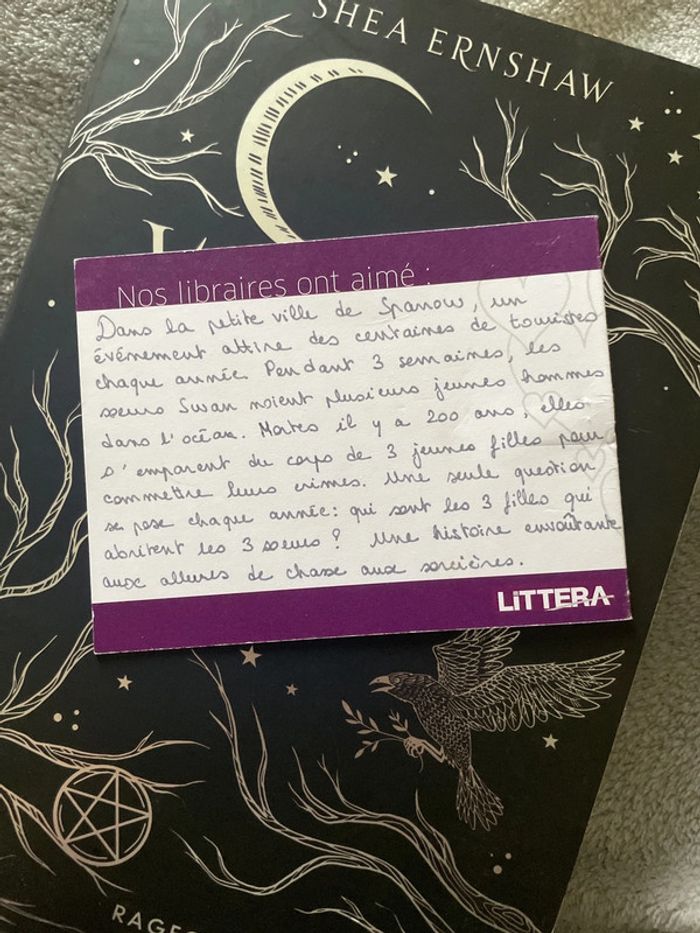 SHEA ERNSHAW
Nos libraires ont aimé :
Dans la petite ville de Sparrow, un
événement attire des centaines de touristes
chaque année. Pendant 3 semaines, les
soeurs Swan noient plusieurs jeunes hommes
dans l'océan. Mortes il y a 200 ans, elles
s'emparent du corps de 3 jeunes filles pour
commettre leurs crimes. Une seule question
se pose chaque année: qui sont les 3 filles qui
abritent les 3 soeurs ? Une histoire envoûtante
aux allures de chasse aux sorcières.
LiTTERA